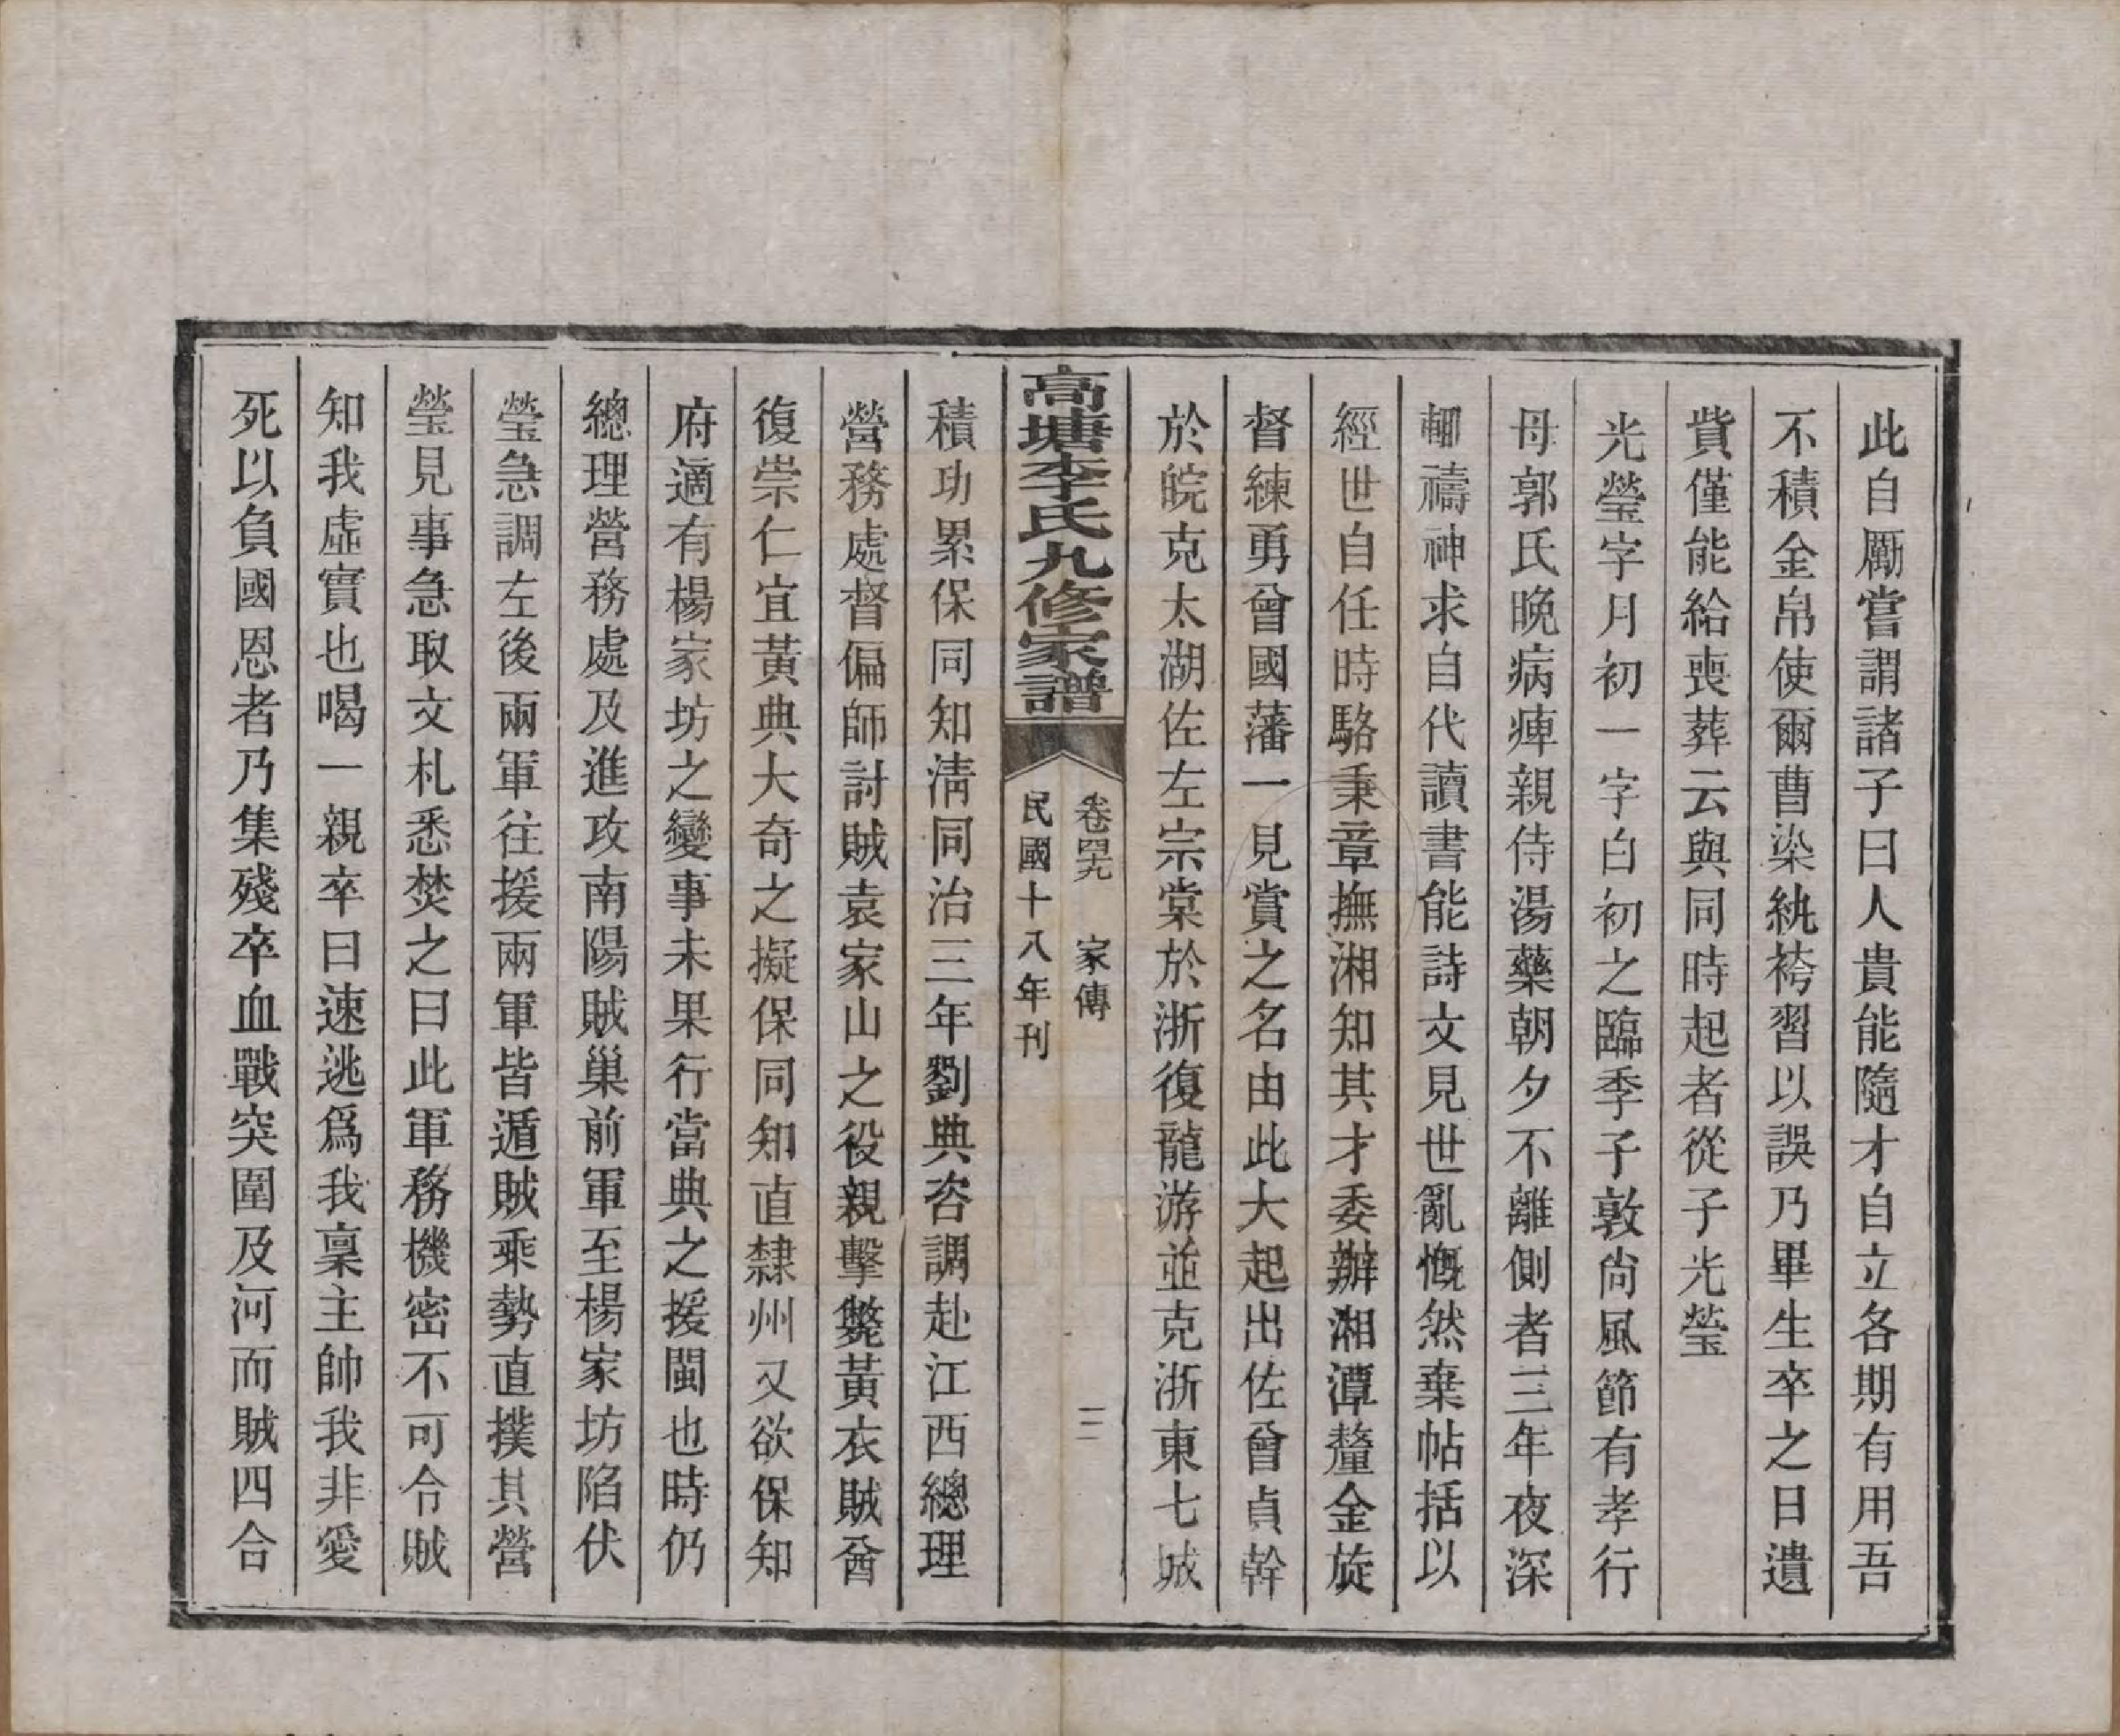 此自厲嘗謂諸子曰人貴能隨才自立各期有用吾
不積金帛使爾曹染紈袴習以誤乃畢生卒之日遺
貲僅能給喪葬云與同時起者從子光瑩
光瑩字月初一字白初之臨季子敦尙風節有孝行
母郭氏晚病痺親侍湯藥朝夕不離側者三年夜深
輙禱神求自代讀書能詩文見世亂慨然棄帖括以
經世自任時駱秉章撫湘知其才委辦湘潭釐金旋
督練勇曾國藩一見賞之名由此大起出佐曾貞幹
於皖克太湖佐左宗棠於浙復龍游並克浙東七城
高塘李氏九修家譜
卷四九 家傳
三
民國十八年刊
積功累保同知淸同治三年劉典咨調赴江西總理
營務處督偏師討賊袁家山之役親擊斃黃衣賊酋
復崇仁宜黃典大奇之擬保同知直隸州又欲保知
府適有楊家坊之變事未果行當典之援閩也時仍
總理營務處及進攻南陽賊巢前軍至楊家坊陷伏
瑩急調左後兩軍往援兩軍皆遁賊乘勢直撲其營
瑩見事急取文札悉焚之曰此軍務機密不可令賊
知我虛實也喝一親卒曰速逃爲我稟主帥我非愛
死以負國恩者乃集殘卒血戰突圍及河而賊四合